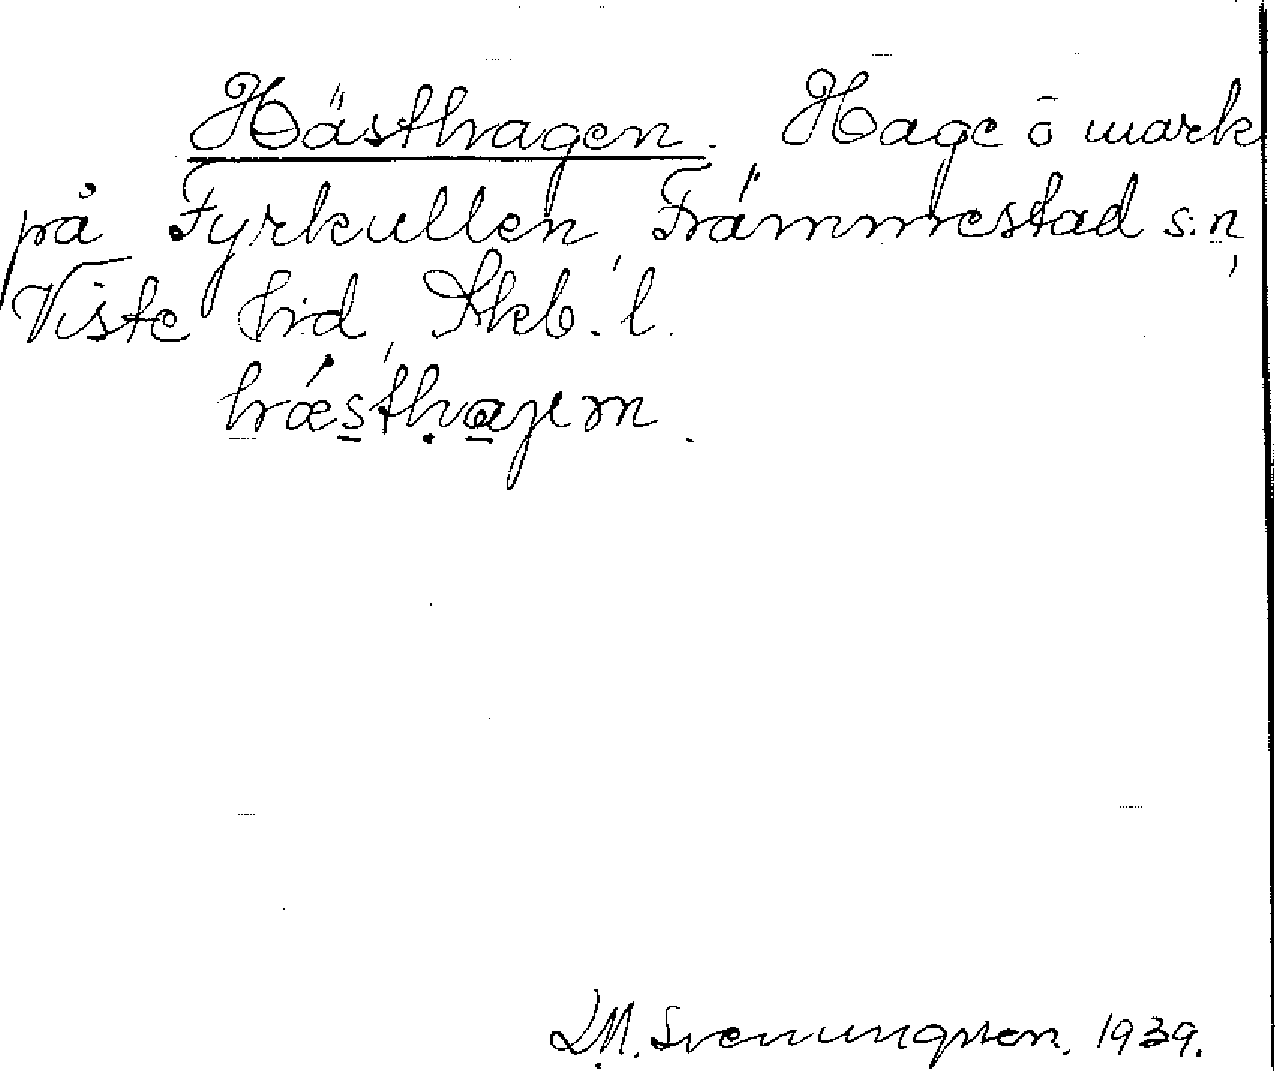 Hästhagen. Hage ō mark
på Fyrkullen, Främmestad s:n,
Viste hd, Skb. l.
hæ̀sthaɡem.
L.M. Svenungsson. 1939.